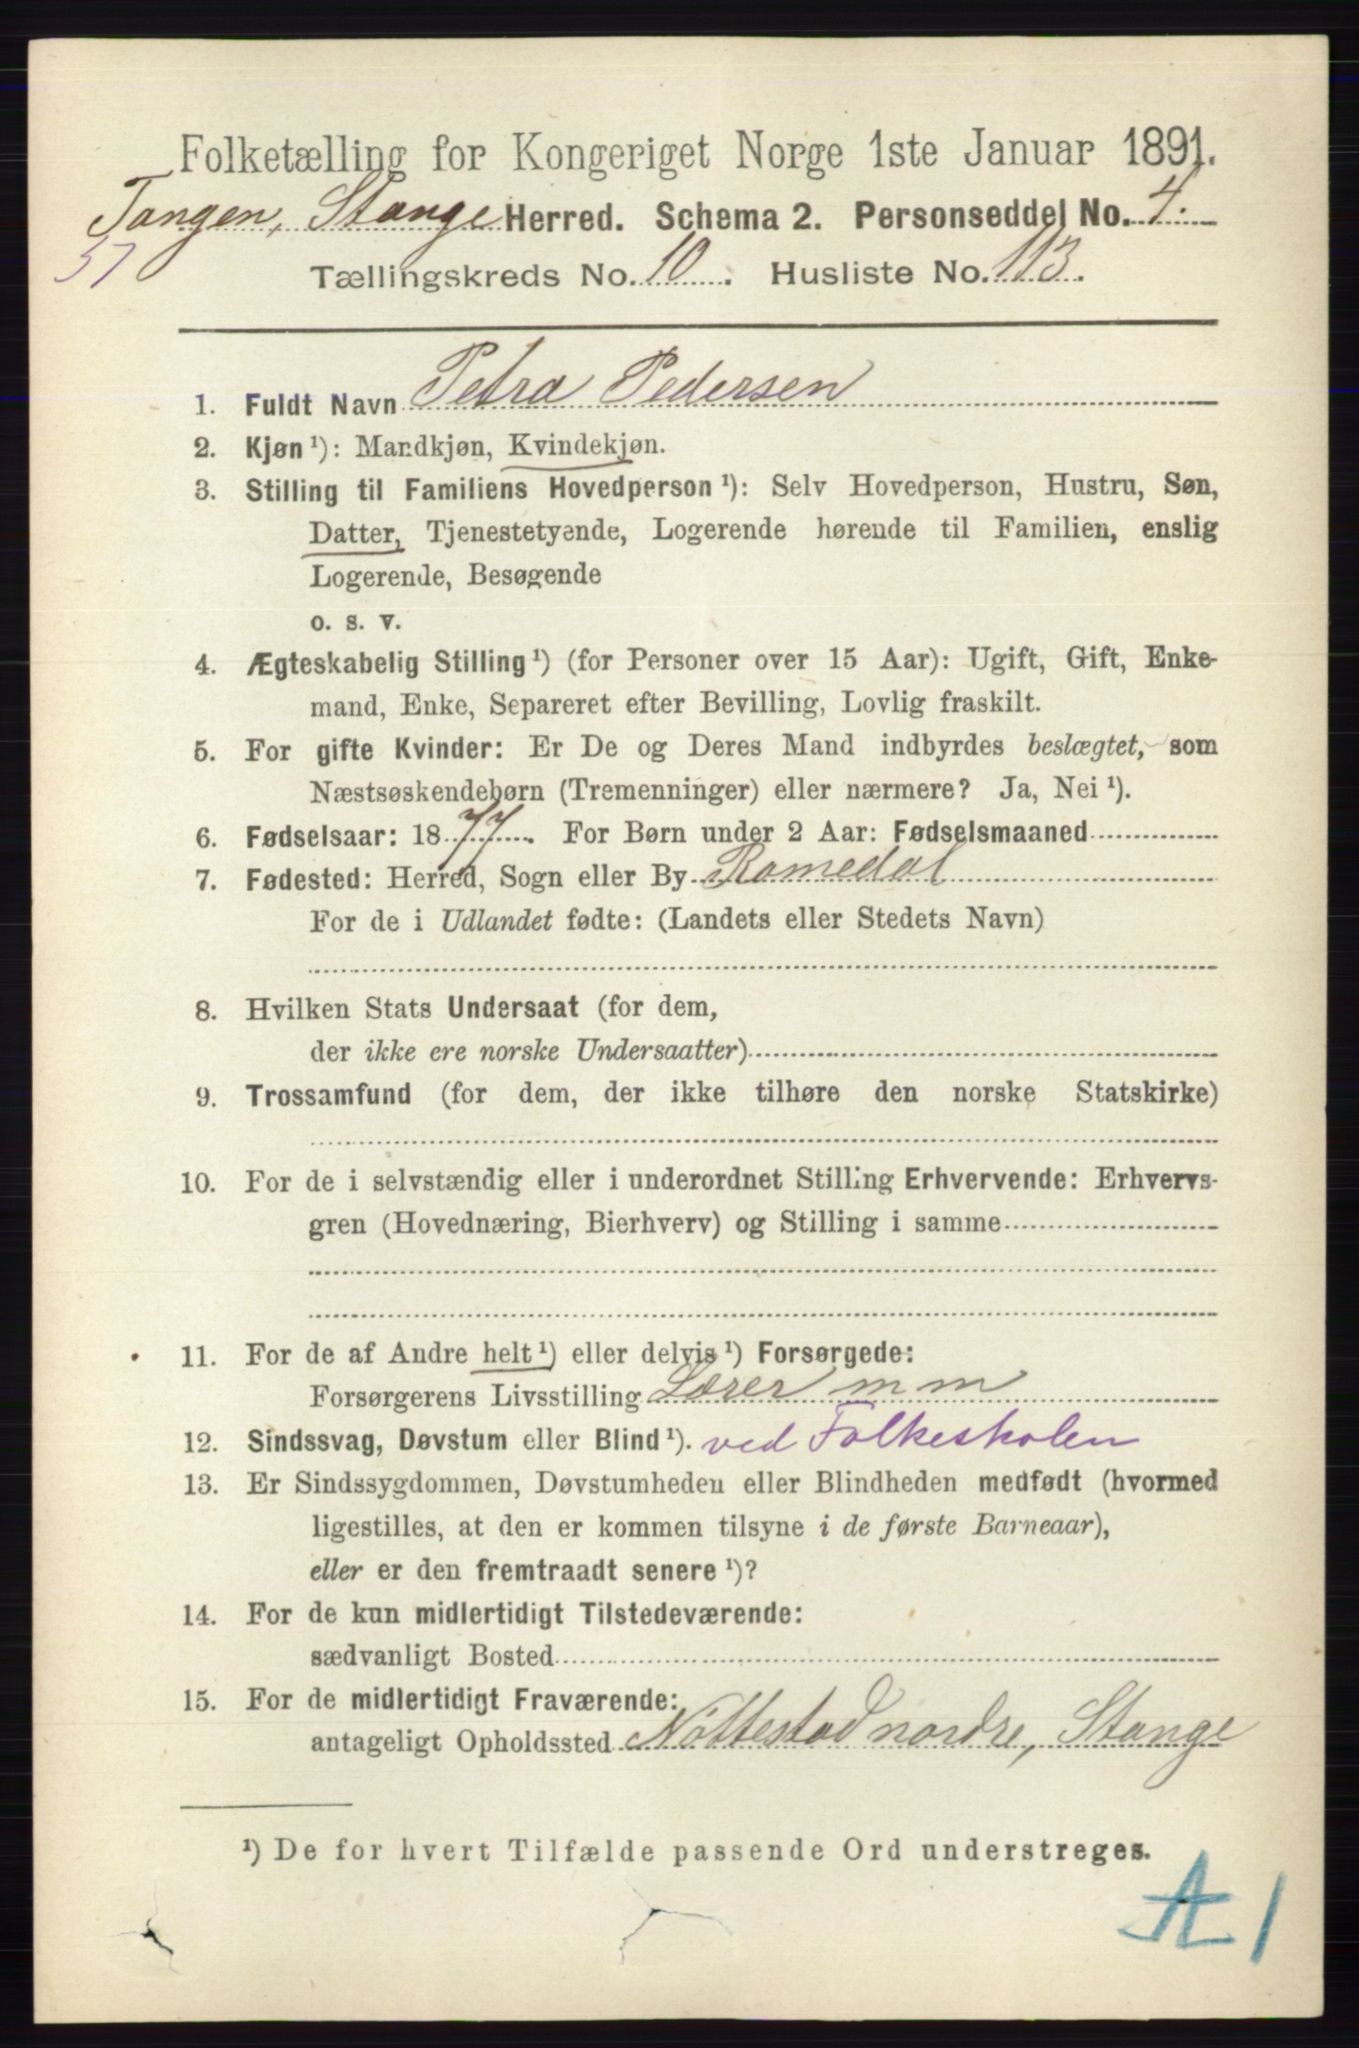 Folketælling for Kongeriget Norge 1ste Januar 1891.
Tangen, Stange Herred. Schema 2. Personseddel No. 4.
57
Tællingskreds No. 10. Husliste No. 113.
1. Fuldt Navn Petra Pedersen
2. Kjøn ¹): Mandkjøn, Kvindekjøn.
3. Stilling til Familiens Hovedperson ¹): Selv Hovedperson, Hustru, Søn,
Datter, Tjenestetyende, Logerende hørende til Familien, enslig
Logerende, Besøgende
o. s. v.
4. Ægteskabelig Stilling ¹) (for Personer over 15 Aar): Ugift, Gift, Enke-
mand, Enke, Separeret efter Bevilling, Lovlig fraskilt.
5. For gifte Kvinder: Er De og Deres Mand indbyrdes beslægtet, som
Næstsøskendebørn (Tremenninger) eller nærmere? Ja, Nei ¹).
6. Fødselsaar: 1877. For Børn under 2 Aar: Fødselsmaaned
7. Fødested: Herred, Sogn eller By Romedal
For de i Udlandet fødte: (Landets eller Stedets Navn)
8. Hvilken Stats Undersaat (for dem,
der ikke ere norske Undersaatter)
9. Trossamfund (for dem, der ikke tilhøre den norske Statskirke)
10. For de i selvstændig eller i underordnet Stilling Erhvervende: Erhvervs-
gren (Hovednæring, Bierhverv) og Stilling i samme
11. For de af Andre helt ¹) eller delvis ¹) Forsørgede:
Forsørgerens Livsstilling Lærer m m
12. Sindssvag, Døvstum eller Blind ¹). ved Folkeskolen
13. Er Sindssygdommen, Døvstumheden eller Blindheden medfødt (hvormed
ligestilles, at den er kommen tilsyne i de første Barneaar),
eller er den fremtraadt senere ¹)?
14. For de kun midlertidigt Tilstedeværende:
sædvanligt Bosted
15. For de midlertidigt Fraværende:
antageligt Opholdssted Nøttestad nordre, Stange
¹) De for hvert Tilfælde passende Ord understreges.
A 1